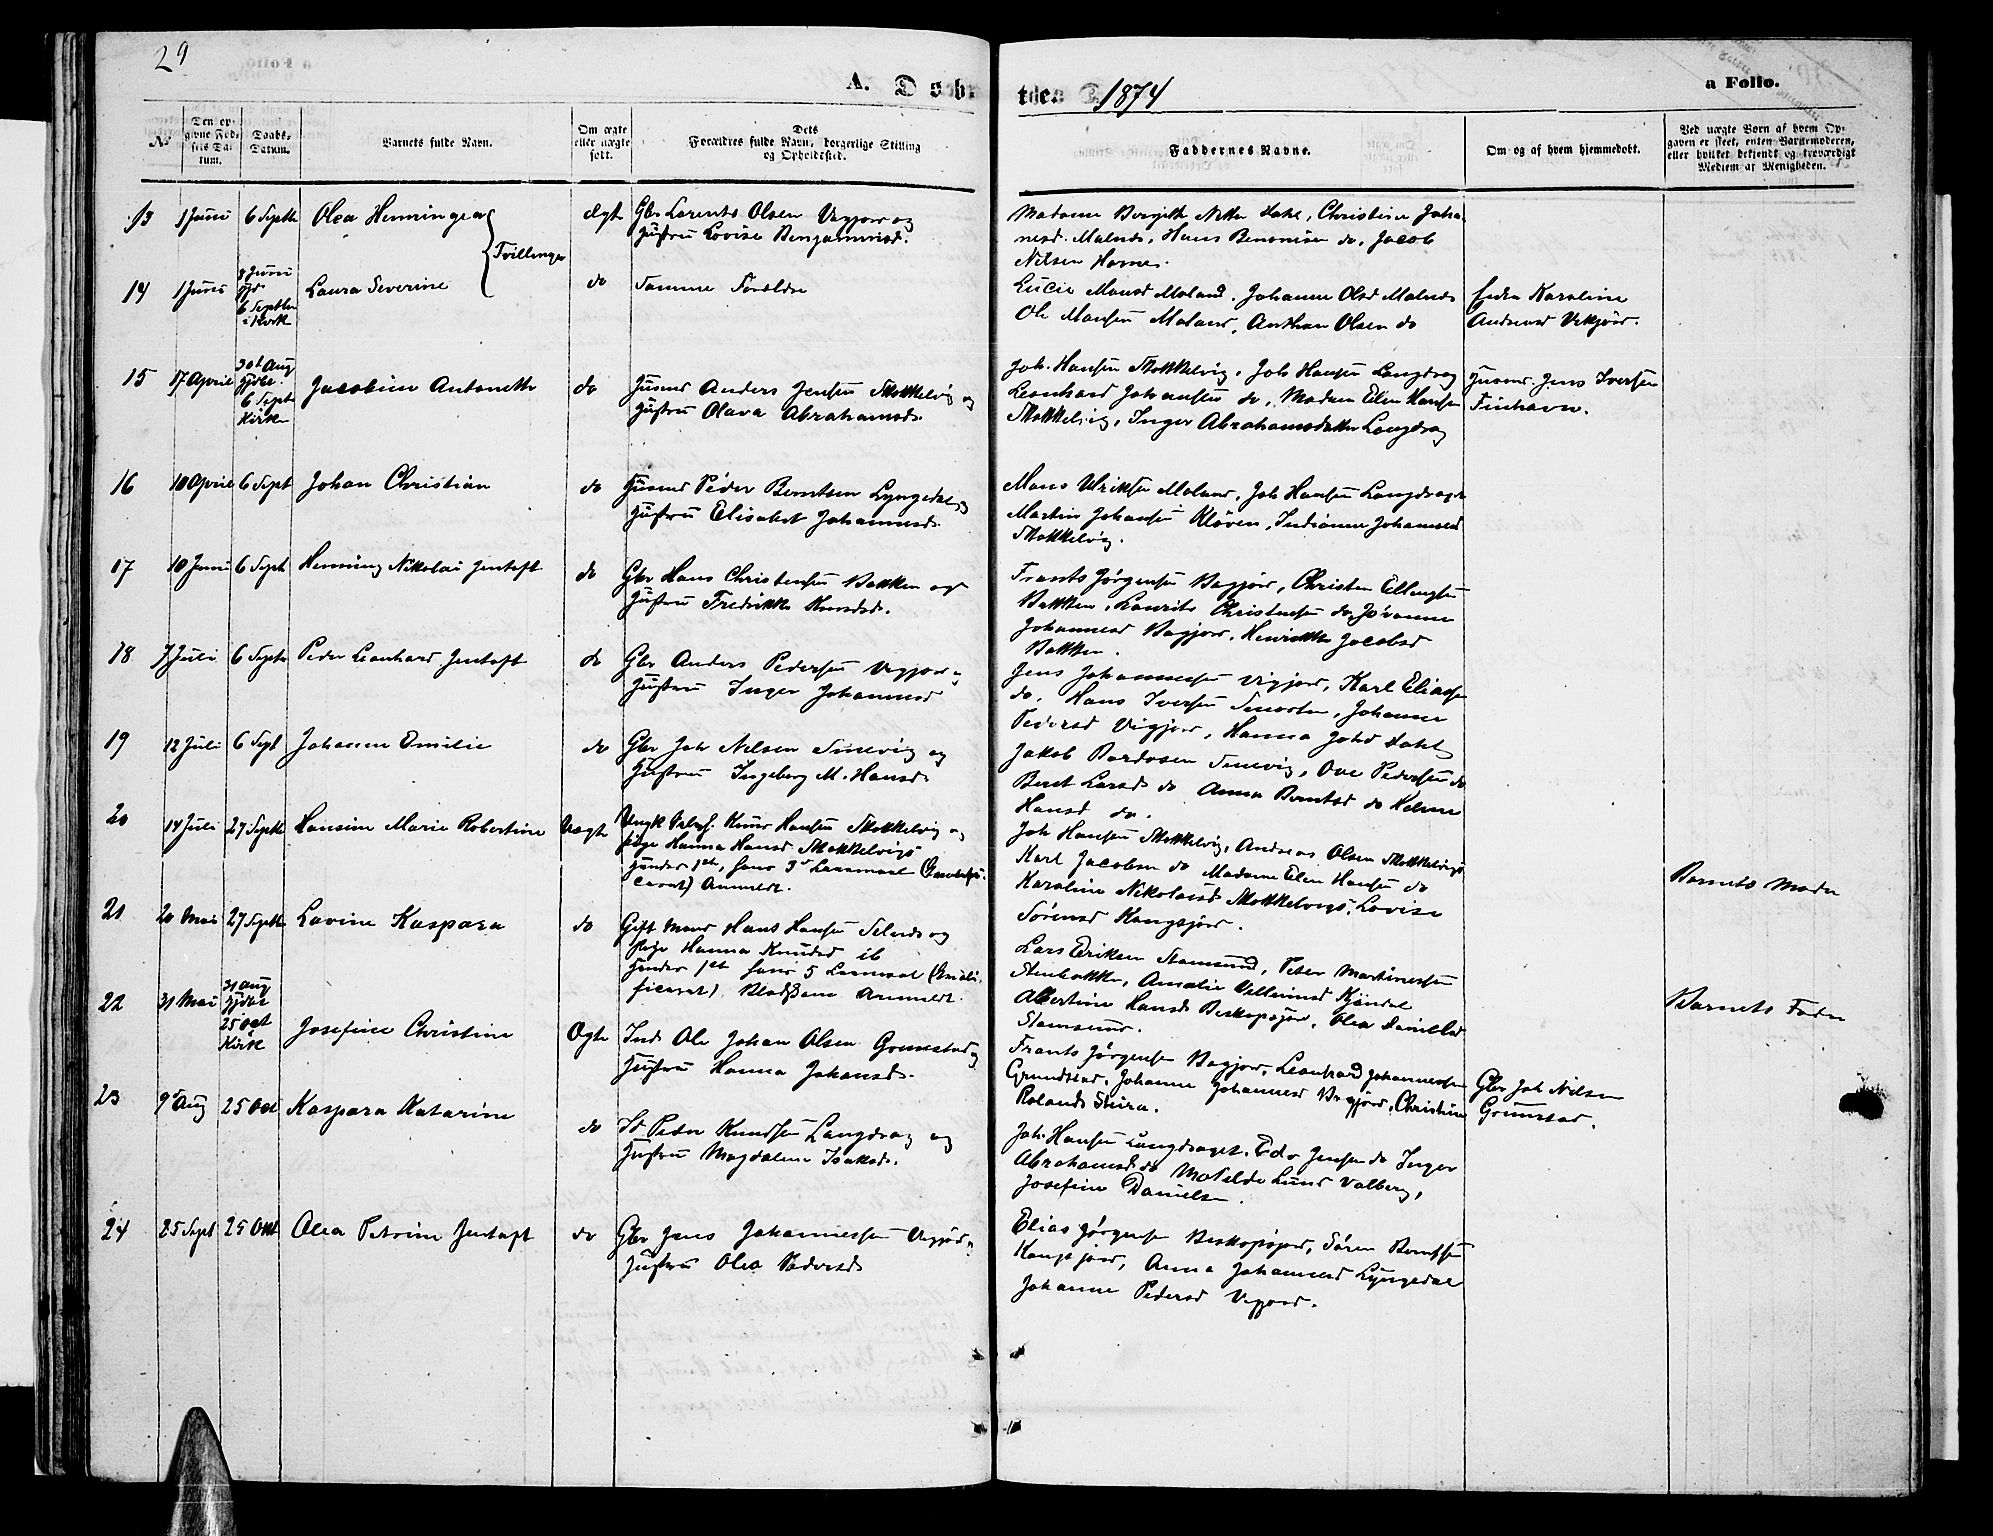 29
A. D
1874
a Folio.
No
Den op-
givne Fød-
sels Da-
tum.
Daabs-
Datum.
Barnets fulde Navn.
Om ægte
eller uægte
født.
Dets
Forældres fulde Navn, borgerlige Stilling
og Opholdsted.
Faddernes Navne.
Om og af hvem hjemmedøbt.
Ved uægte Børn af hvem Op-
gaven er skeet, enten Barnemoderen,
eller hvilket bekjendt og troværdigt
Medlem af Menigheden.
13 1 Juni 6 Septb Olea Henningea
Tvillinger
Ægte Gbr Lorents Olsen Vegjor og
Hustru Lovise Benjaminsd.
Madame Bergitte Dahl, Christine Joha-
nesd. Malnæs, Hans Benonisen do, Jacob
Nilsen
14 1 Juni
8 Juni
6 Septbr
i Kirke
Laura Severine
do Samme Foreldre
Lucie Monsd Moland, Johanne Olsd
Ole Monsen Moland, Anthon Olsen do
Enke Karoline
Andreasd
15 17 April
30t Aug
Hjdbt.
6 Sept
Kirke
Jacobine Antonette
do Husmd Anders Jensen Stokkelvig og
Hustru Olava Abrahamsd.
Joh. Hansen Stokkelvig, Joh Hansen Langdrag
Leonhard Johansen do, Madam Elen Hansen
Stokkelvig, Inger Abrahamsdatter Langdrag
Husmd. Jens Iversen
Finhavn.
16 10 April 6 Sept Johan Christian
do Husmd Peder Berntsen Lyngedal og
Hustru Elisabet Johannesd.
Mons Ulriksen Moland, Joh Hansen Langdraget
Martin Johansen Kløven, Indianne Johannesd
Stokkelvig.
17 10 Juni 6 Sept Henning Nikolai Jentoft
do Gbr Hans Christensen Bakken og
Hustru Fredrikke Knudsd.
Frants Jørgensen Bøgjor, Christen Ellingsen
Bakken, Laurits Christensen do, Johanne
Johannesd Bøgjor, Henrikke Jacobsd
Bakken.
18 7 Juli 6 Septb Peder Leonhard Jentoft
do Gbr Anders Pedersen Vegjor og
Hustru Inger Johannesd
Jens Johannessen Vigjord, Karl Eliassen
do, Hans Iversen, Johanne
Pedersd Vigjor, Hanna Johsd Dahl
19 12 Juli 6 Sept Johanne Emilie
do Gbr Joh Nilsen og
Hustru Ingeborg M. Hansd.
Jakob, Ove Pedersen do
Beret Larsd do Anna Berntsd do
Hansd do.
20 14 Juli 27 Septb Hansine Marie Robertine
Uægte Ungk Knud Hansen Stokkelvig og
Pige Hanna Hansd Stokkelvigs
hendes 1st, hans 3d Leiermaal
Anmeldt.
Joh Hansen Stokkelvig, Andreas Olsen Stokkelvigs
Karl Jacobsen do Madame Elen Hansen do
Karoline Nikolaisd Stokkelvigs, Lovise
Sørensd Kongsjord.
Barnets Moder
21 20 Mai 27 Septb Lovine Kaspara
do Gift Mand Hans Hansen og
Pige Hanna Knudsd ib
hendes 1st hans 5 Leiermaal
Anmeldt.
Lars Eriksen Stamsund, Peter Martinussen
Steinbakke, Amalie Kjøndal
Albertine Hansd, Olea Danielsd
Stamsund.
Barnets Fader
22 31 Mai
31 Aug
Hjdbt
25 Oct
Kirke
Josefine Christine
Ægte Inds Ole Johan Olsen Grunstad og
Hustru Hanna Johansd.
Frants Jørgensen Bøgjor, Leonhard Johannessen
Grundstad, Johanne Johannesd, Christine
Roland
Gbr Joh Nilsen
Grunstad.
23 9 Aug 25 Oct Kaspara Katarine
do Peder Knudsen Langdrag og
Hustru Magdalena Isaksd.
Joh Hansen Langdraget, Jensen do Inger
Abrahamsd do Matilde Lund Valberg,
Josefine Danielsen.
24 25 Sept 25 Okt Olea Petrine Jentoft
do Gbr Jens Johannessen Vigjor og
Hustru Olea Pedersd
Elias Jørgensen, Sören Berntsen
Kongsjord, Anna Johannesd Lyngedal
Johanne Pedersd Vegjord.